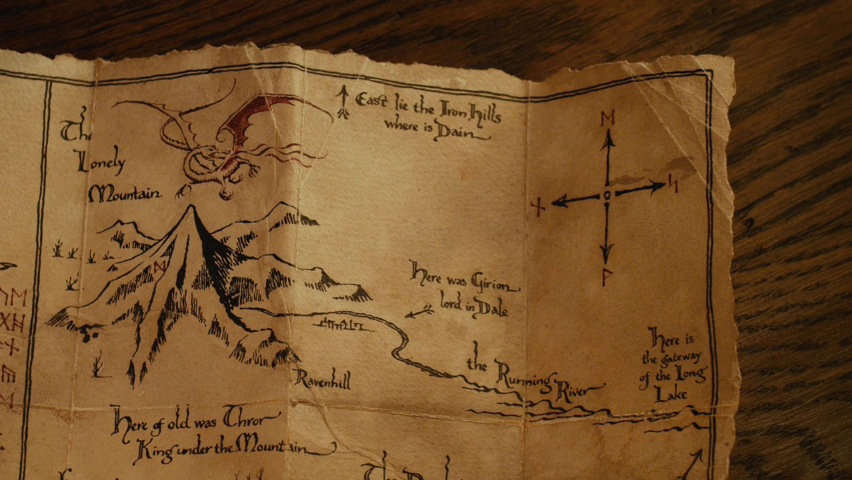 The
Lonely
Mountain
East lie the Iron Hills
where is Dain
ᛖ
ᚾ
ᛋ
ᚹ
ᛞ
Here was Girion
lord in Dale
Ravenhill
the Running
River
Here is
the gateway
of the Long
Lake
Here of old was Thror
King under the Mountain